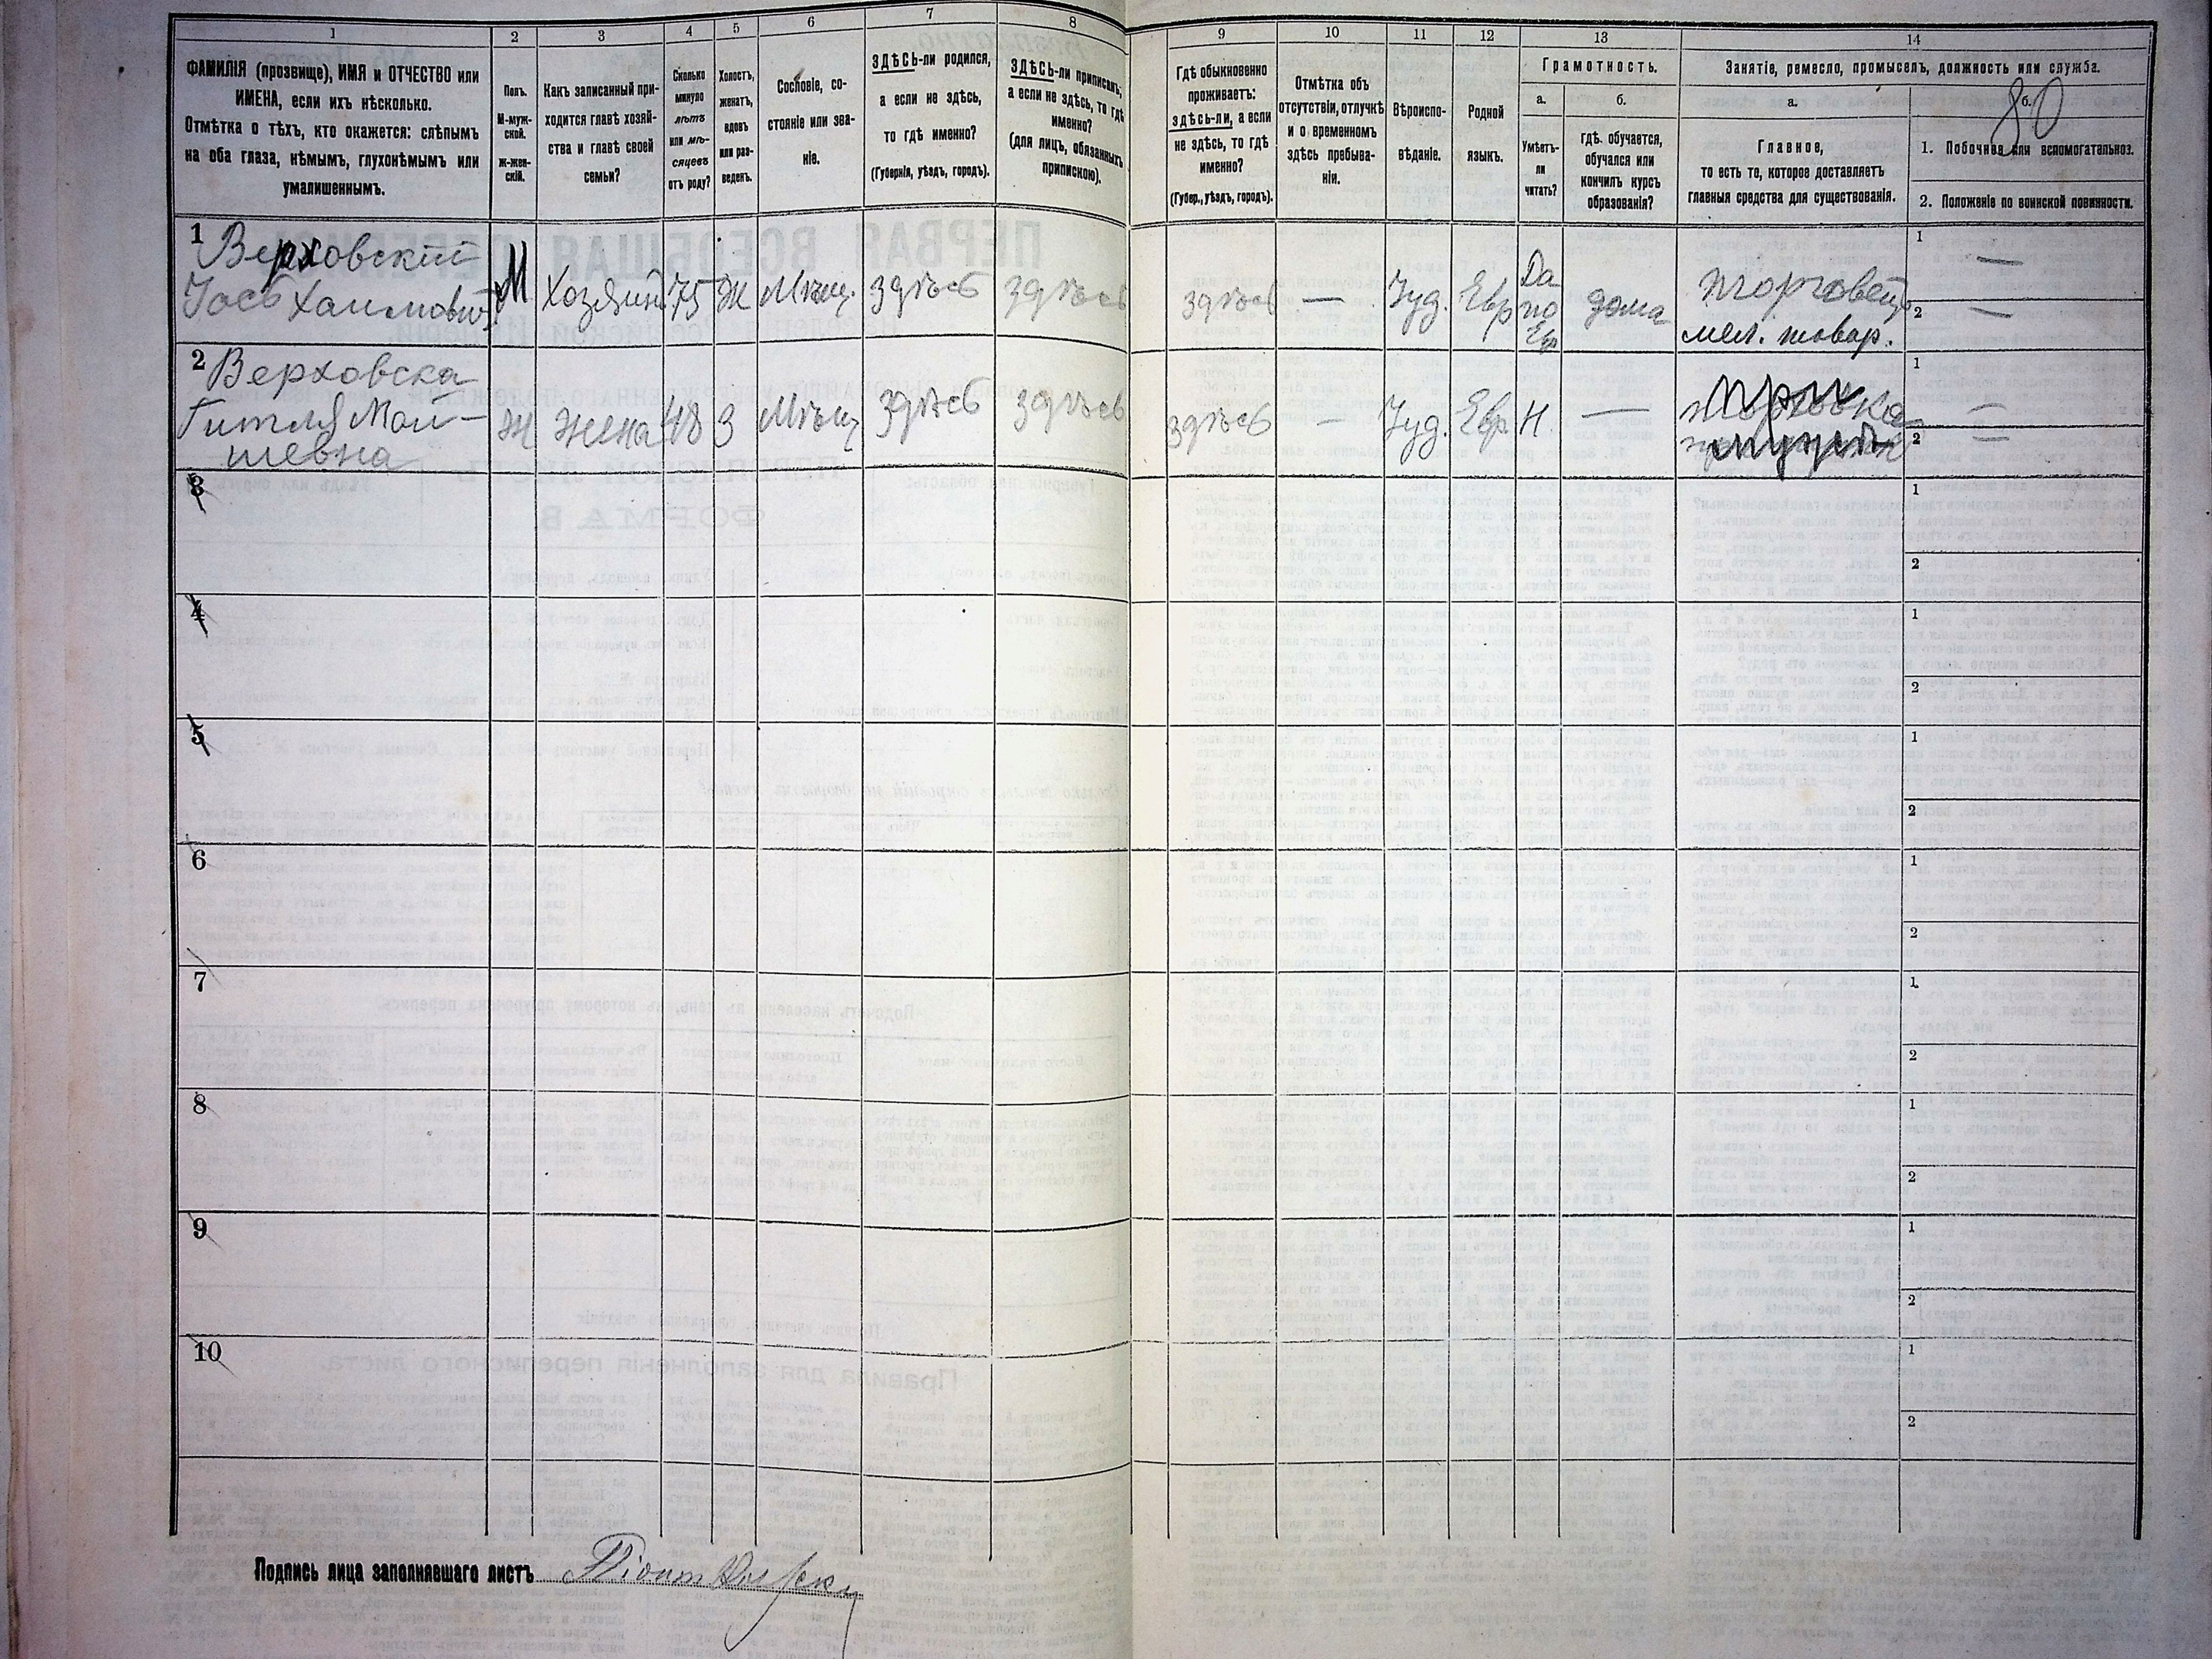 1
2
3
4
5
6
7
8
9
10
11
12
13
14
ФАМИЛІЯ (прозвище), ИМЯ и ОТЧЕСТВО или
ИМЕНА, если ихъ нѣсколько.
Отмѣтка о тѣхъ, кто окажется: слѣпымъ
на оба глаза, нѣмымъ, глухонѣмымъ или
умалишеннымъ.
Полъ.
М-муж-
ской.
ж-жен-
скій.
Какъ записанный при-
ходится главѣ хозяй-
ства и главѣ своей
семьи?
Сколько
минуло
лѣтъ
или мѣ-
сяцевъ
отъ роду?
Холостъ,
женатъ,
вдовъ
или раз-
веденъ.
Сословіе, со-
стояніе или зва-
ніе.
ЗДѢСЬ-ли родился,
а если не здѣсь,
то гдѣ именно?
(Губернія, уѣздъ, городъ).
ЗДѢСЬ-ли приписанъ,
а если не здѣсь, то гдѣ
именно?
(для лицъ, обязанныхъ
припискою).
Гдѣ обыкновенно
проживаетъ:
здѣсь-ли, а если
не здѣсь, то гдѣ
именно?
(Губер., уѣздъ, городъ).
Отмѣтка объ
отсутствіи, отлучкѣ
и о временномъ
здѣсь пребыва-
ніи.
Вѣроиспо-
вѣданіе.
Родной
языкъ.
Грамотность.
а.
Умѣетъ-
ли
читать?
б.
гдѣ обучается,
обучался или
кончилъ курсъ
образованія?
Занятіе, ремесло, промыселъ, должность или служба.
а.
Главное,
то есть то, которое доставляетъ
главныя средства для существованія.
б.
80
1. Побочное или вспомогательное.
2. Положеніе по воинской повинности.
1
Верховскій
Іось Хаимовичъ
М
Хозяинъ
75
Ж
Мѣщ.
здѣсь
здѣсь
здѣсь
—
Іуд.
Евр
Да
по
Евр
дома
торговецъ
мел. товар.
1 —
2 —
2
Верховска
Гитля Мой-
шевна
Ж
Жена
48
З
Мѣщ
здѣсь
здѣсь
здѣсь
—
Іуд.
Евр.
Н.
—
при
мужѣ
1 —
2 —
3
1
2
4
1
2
5
1
2
6
1
2
7
1
2
8
1
2
9
1
2
10
1
2
Подпись лица заполнявшаго листъ